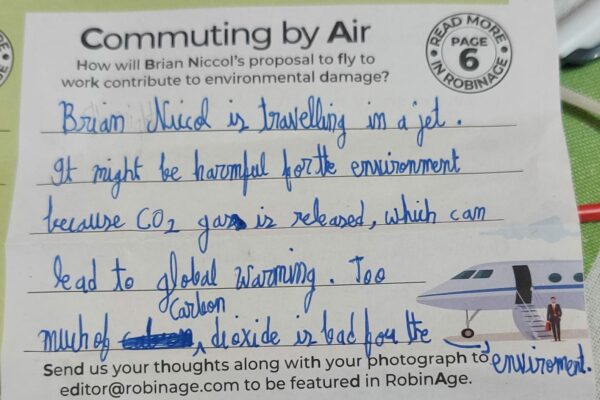 Commuting by Air
How will Brian Niccol's proposal to fly to
work contribute to environmental damage?
READ MORE
PAGE
6
IN ROBINAGE
Brian Niccol is travelling in a jet.
It might be harmful for the environment
because CO2 gas is released, which can
lead to global warming. Too
much of Carbon dioxide is bad for the enviroment.
Send us your thoughts along with your photograph to
editor@robinage.com to be featured in RobinAge.